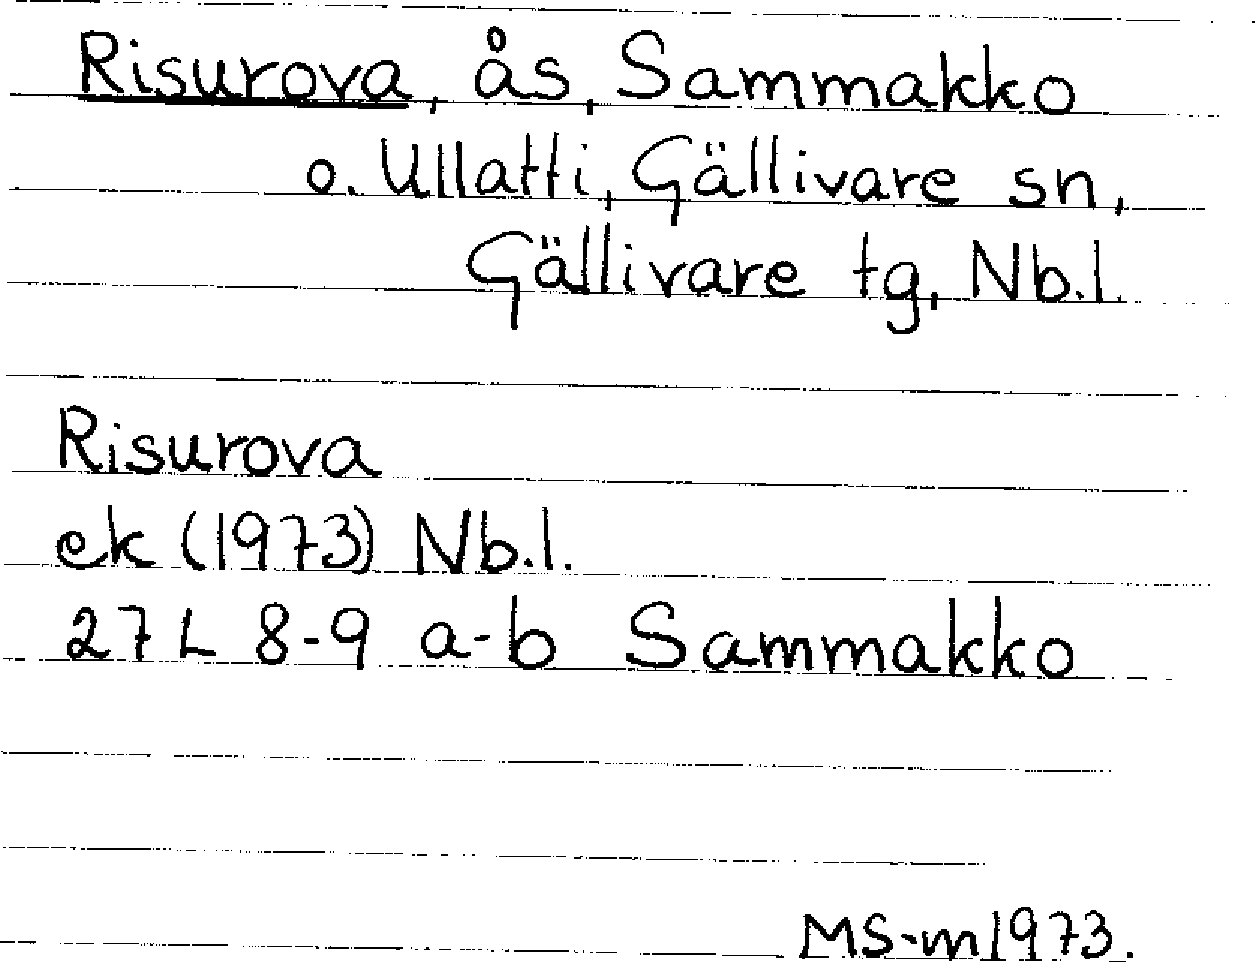 Risurova, ås, Sammakko
o. Ullatti, Gällivare sn,
Gällivare tg, Nb.l.
Risurova
ek (1973) Nb.l.
27 L 8-9 a-b Sammakko
MS-m 1973.